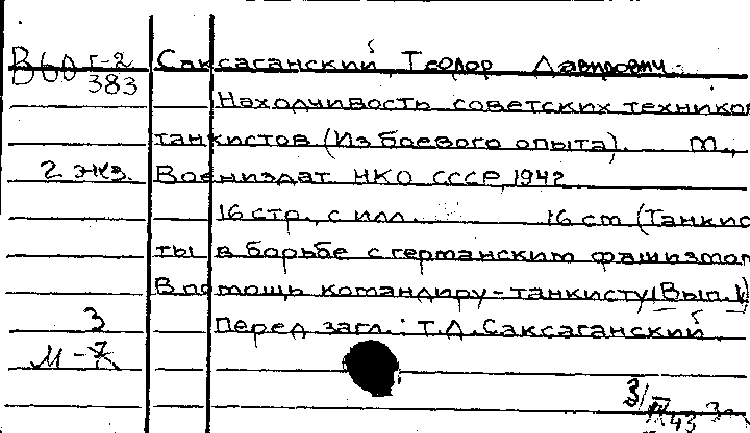 В60 Г-2 Саксаганский, Теодор Давидович.
383
Находчивость советских технико
танкистов (Из боевого опыта). М.,
2 экз. Воениздат НКО СССР, 1942.
16 стр., с илл. 16 cm (Танкис
ты в борьбе с германским фашизмо
В помощь командиру-танкисту/Вып.
3 Перед загл.: Т.Д. Саксаганский.
М-7
3/IV 43